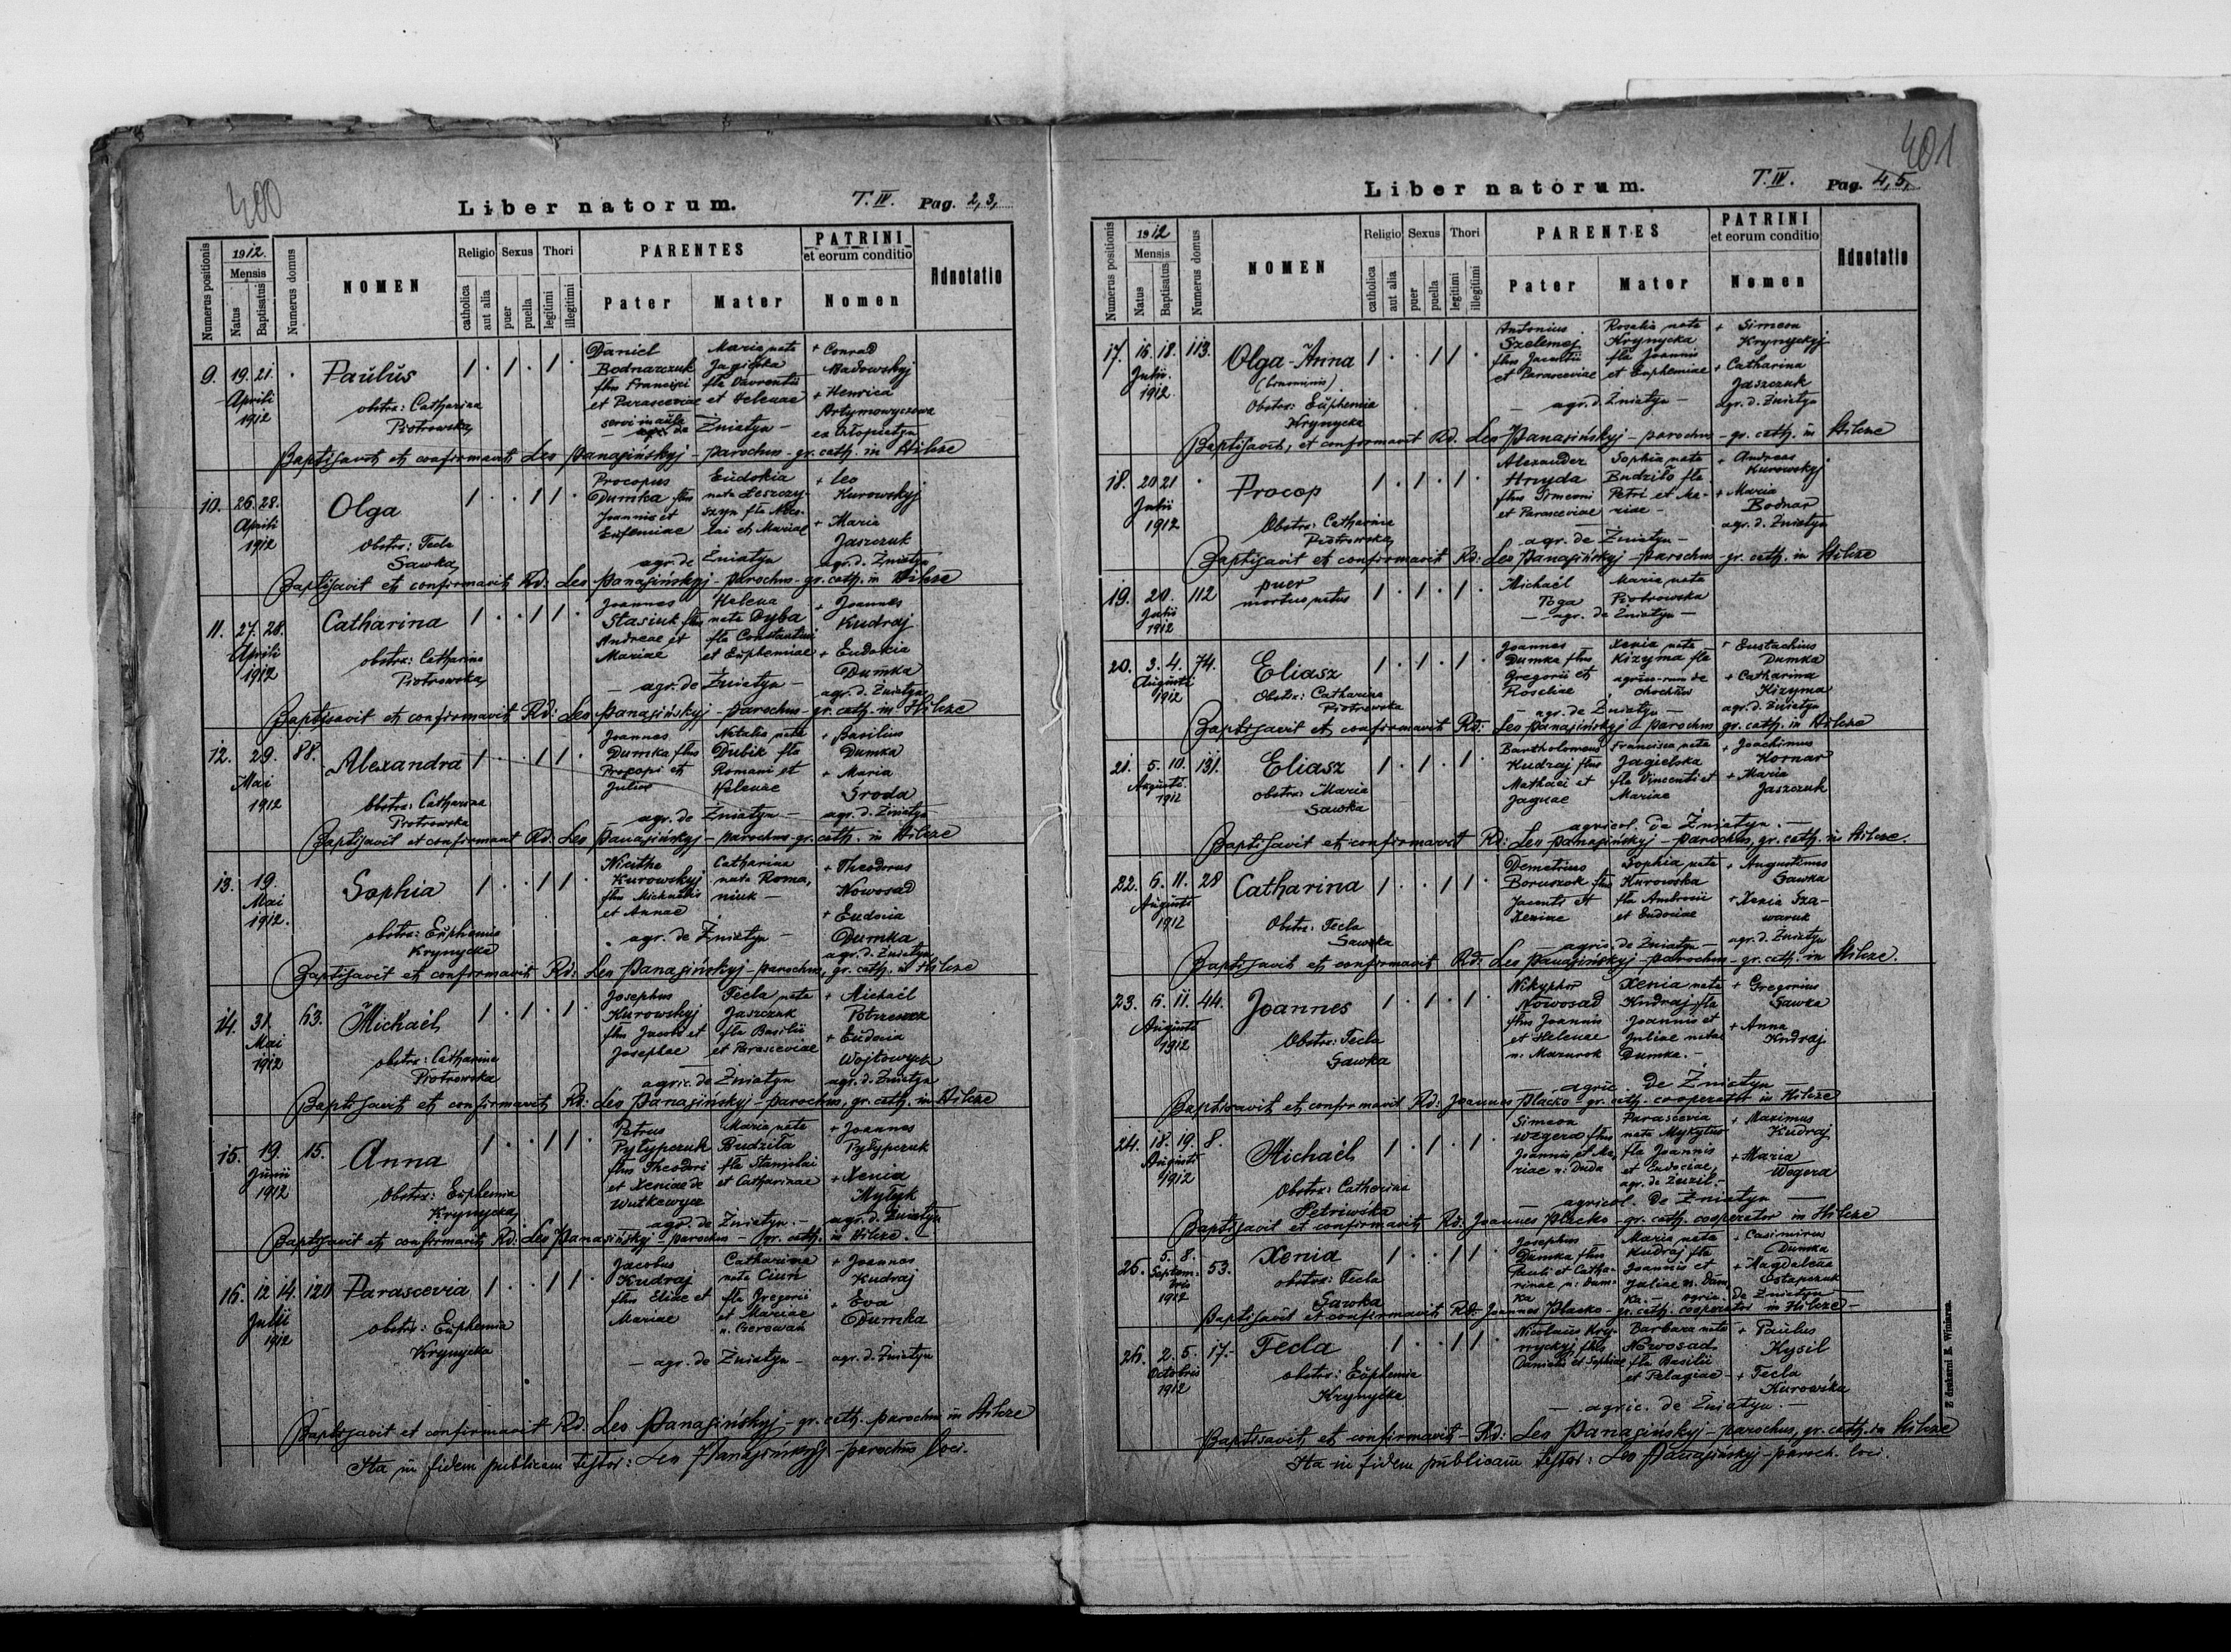 400
Liber natorum.
T. IV. Pag. 2, 3,
Numerus positionis
1912.
Mensis
Natus
Baptisatus
Numerus domus
NOMEN
Religio
catholica
aut alia
Sexus
puer
puella
Thori
legitimi
illegitimi
PARENTES
Pater
Mater
PATRINI
et eorum conditio
Nomen
Adnotatio
9. 19. 21. Aprili 1912
Paulus
obstrx: Catharina
Piotrowska
1 . 1 . 1 .
Daniel
Bodnarczuk
flius Francisci
et Parasceviae
Maria nata
Jagielska
fla Laurentii
et Helenae
servi in aula
de Żniatyn -
+ Conrad
Badowskyj
+ Henrica
Artymowyczowa
ex Chłopiatyn
Baptisavit et confirmavit Leo Panasińskyj - parochus - gr. cath. in Hilcze
10. 26. 28. Aprili 1912
Olga
Obstrx: Tecla
Sawka
1 . . 1 1 .
Procopus
Dumka flius
Joannis et
Eufemiae
Eudokia
nata Leszczy-
szyn fla Nico-
lai et Mariae
agr. de Żniatyn
+ Leo
Kurowskyj
+ Maria
Jaszczuk
agr. d. Żniatyn
Baptisavit et confirmavit Rd: Leo Panasińskyj - parochus - gr. cath. in Hilcze
11. 27. 28. Aprili 1912
Catharina
obstrx: Catharina
Piotrowska
1 . . 1 1 .
Joannes
Stasiuk flius
Andreae et
Mariae
Helena
nata Dyba
fla Constantini
et Euphemiae
- agr. de Żniatyn -
+ Joannes
Kudraj
+ Eudoxia
Dumka
agr. d. Żniatyn
Baptisavit et confirmavit Rd: Leo Panasińskyj - parochus - gr. cath. in Hilcze
12. 29. Mai 1912
88.
Alexandra
Obstrx: Catharina
Piotrowska
1 . . 1 1 .
Joannes
Dumka flius
Procopi et
Juliae
Natalia nata
Dubik fla
Romani et
Helenae
- agr. de Żniatyn -
+ Basilius
Dumka
+ Maria
Sroda
agr. d. Żniatyn
Baptisavit et confirmavit Rd: Leo Panasińskyj - parochus - gr. cath. in Hilcze
13. 19. Mai 1912.
Sophia
obstrx: Euphemia
Krynycka
1 . . 1 1 .
Nicitha
Kurowskyj
flius Michaelis
et Annae
Catharina
nata Roma,
niuk -
agr. de Żniatyn -
+ Theodorus
Nowosad
+ Eudoxia
Dumka
agr. d. Żniatyn
Baptisavit et confirmavit Rd: Leo Panasińskyj - parochus, gr. cath. in Hilcze
14. 31. Mai 1912
63.
Michaël
obstrx: Catharina
Piotrowska
1 . 1 . 1 .
Josephus
Kurowskyj
flius Jacobi et
Josephae
Tecla nata
Jaszczuk
fla Basilii
et Parasceviae
agric. de Żniatyn
+ Michaël
+ Eudoxia
Wojtowycz
agr. d. Żniatyn
Baptisavit et confirmavit Rd: Leo Panasińskyj - parochus, gr. cath. in Hilcze
15. 19. Junii 1912
15.
Anna
Obstrx: Euphemia
Krynycka
1 . . 1 1 .
Petrus
Pyłypczuk
flius Theodori
et Xeniae de
Wutkewycz
Maria nata
Budziła
fla Stanislai
et Catharinae
- agr. de Żniatyn. -
+ Joannes
Pyłypczuk
+ Xenia
Mylyk
agr. d. Żniatyn
Baptisavit et confirmavit Rd: Leo Panasińskyj - parochus - gr. cath. in Hilcze. -
16. 12. 14. Julii 1912
120
Parascevia
obstrx: Euphemia
Krynycka
1 . . 1 1 .
Jacobus
Kudraj
flius Eliae et
Mariae
Catharina
nata Ciuń
fla Gregorii
et Mariae
n. Czerewań
- agr. de Żniatyn -
+ Joannes
Kudraj
+ Eva
Dumka
agr. d. Żniatyn
Baptisavit et confirmavit Rd. Leo Panasińskyj - gr. cath. parochus in Hilcze
Ita in fidem publicam testor: Leo Panasińskyj - parochus loci.
401
Liber natorum.
T. IV. Pag. 4, 5,
Numerus positionis
1912
Mensis
Natus
Baptisatus
Numerus domus
NOMEN
Religio
catholica
aut alia
Sexus
puer
puella
Thori
legitimi
illegitimi
PARENTES
Pater
Mater
PATRINI
et eorum conditio
Nomen
Adnotatio
17. 16. 18. Julii. 1912.
113.
Olga-Anna
(binominis)
Obstrx: Euphemia
Krynycka
1 . . 1 1 .
Antonius
Szelemej
flius Jacentii
et Parasceviae
Rosalia nata
Krynycka
fla Joannis
et Euphemiae
- agr. d. Żniatyn -
+ Simeon
Krynyckyj
+ Catharina
Jaszczuk
agr. d. Żniatyn
Baptisavit, et confirmavit Rd. Leo Panasińskyj - parochus - gr. cath. in Hilcze
18. 20 21 Julii 1912
Procop
Obstrx: Catharina
Piotrowska
1 . 1 . 1 .
Alexander
Hnyda
flius Simeoni
et Parasceviae
Sophia nata
Budziło fla
Petri et Ma-
riae -
agr. de Żniatyn -
+ Andreas
Kurowskyj
+ Maria
Bodnar
agr. d. Żniatyn
Baptisavit et confirmavit Rd: Leo Panasińskyj - parochus - gr. cath. in Hilcze
19. 20. Julii 1912
112
puer
mortuus natus
1 . 1 . 1 .
Michaël
Toga
Maria nata
Piotrowska
- agr. de Żniatyn -
20. 3. 4. Augusti 1912
74.
Eliasz
Obstrx: Catharina
Piotrowska
1 . 1 . 1 .
Joannes
Dumka flius
Gregorii et
Xenia nata
Kizyma fla
- agr. de Żniatyn -
+ Eustachius
Dumka
+ Catharina
Kizyma
agr. d. Żniatyn
Baptisavit et confirmavit Rd: Leo Panasińskyj - parochus gr. cath. in Hilcze
21. 5. 10. Augusti 1912
131.
Eliasz
obstrx: Maria
Sawka
1 . 1 . 1 .
Bartholomeus
Kudraj flius
Mathaei et
Jagnae
Francisca nata
Jagielska
fla Vincenti et
Mariae
agricol. de Żniatyn. -
+ Joachimus
Kornar
+ Maria
Jaszczuk
Baptisavit et confirmavit Rd: Leo Panasińskyj - parochus, gr. cath. in Hilcze.
22. 6. 11. Augusti 1912
28
Catharina
Obstrx: Tecla
Sawka
1 . . 1 1 .
Demetrius
Boruszok flius
Jacenti et
Xeniae
Sophia nata
Kurowska
fla Ambrosii
et Eudociae
- agric. de Żniatyn -
+ Augustinus
Sawka
+ Xenia Sza-
waruk
agr. d. Żniatyn
Baptisavit et confirmavit Rd: Leo Panasińskyj - parochus - gr. cath. in Hilcze.
23. 6. 11. Augusti 1912
44.
Joannes
Obstrx: Tecla
Sawka
1 . 1 . 1 .
Nikyphor
Nowosad
flius Joannis
et Helenae
n. Mazurok
Xenia nata
Kudraj fla
Joannis et
Juliae natae
Dumka. -
agric. de Żniatyn -
+ Gregorius
Sawka
+ Anna
Kudraj
Baptisavit et confirmavit Rd: Joannes Placko - gr. cath. cooperator in Hilcze
24. 18. 19. Augusti 1912
8.
Michaël
Obstrx: Catharina
Petriwska
1 . 1 . 1 .
Simeon
Wegera flius
Joannis et Ma,
riae n: Duda
Parascevia
nata Mykytiuk
fla Joannis
et Eudociae,
agr. de Żużil. -
agricol. de Żniatyn -
+ Maximus
Kudraj
+ Maria
Wegera
Baptisavit et confirmavit Rd. Joannes Placko - gr. cath. cooperator in Hilcze
25. 5. 8. Septem-bris 1912
53.
Xenia
obstrx: Tecla
Sawka
1 . . 1 1 .
Josephus
Dumka flius
Pauli et Catha-
rinae n: Dum-
ka
Maria nata
Kudraj fla
Joannis et
Juliae n. Dum,
ka. - agric. de Żniatyn -
+ Casimirus
Dumka
+ Magdalena
Ostapczuk
Baptisavit et confirmavit Rd: Joannes Placko - gr. cath. cooperator in Hilcze -
26. 2. 5. Octobris 1912
17.-
Tecla
obstrx: Euphemia
Krynycka
1 . . 1 1 .
Nicolaus Kry-
nyckyj flius
Danielis et Sophiae
Barbara nata
Nowosad
fla Basilii
et Pelagiae -
- agric. de Żniatyn. -
+ Paulus
Kysil
+ Tecla
Kurowska
Baptisavit et confirmavit - Rd: Leo Panasińskyj - parochus, gr. cath. in Hilcze
Ita in fidem publicam testor: Leo Panasińskyj - paroch. loci.
Z drukarni E. Winiarza.